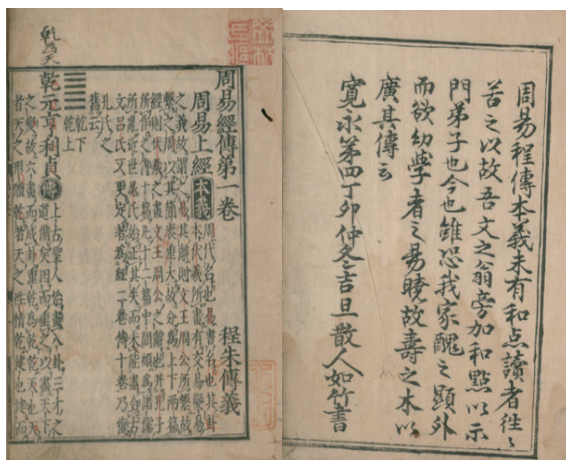 周易程傳本義未有和点讀者往〻
苦之以故吾文之翁旁加和點以示
門弟子也今也雖恐我家醜之顯外
而欲幼學者之易曉故壽之木以
廣其傳云
寛永第四丁卯仲冬吉旦散人如竹書
周易經傳第一卷 程朱傳義
周易上經 本義 周代名也易書名也其卦
本伏羲所畫有交易變易
之義故謂之易其辭則文王周公所繫故
繫之周以其簡袠重大故分爲上下兩篇
經則伏羲之畫文王周公之辭也并孔子
所作之傳十篇凡十二篇中間頗爲諸儒
所亂近世晁氏始正其失而未能盡合古
文吕氏又更定著爲經二卷傳十卷乃復
孔氏之
舊云
乾下
乾上
乾爲天
乾元亨利貞 傳 上古聖人始畫八卦三才之
道備矣因而重之以盡天下
之變故六畫而成卦重乾爲乾乾天也天
者天之形體乾者天之性情乾健也健而